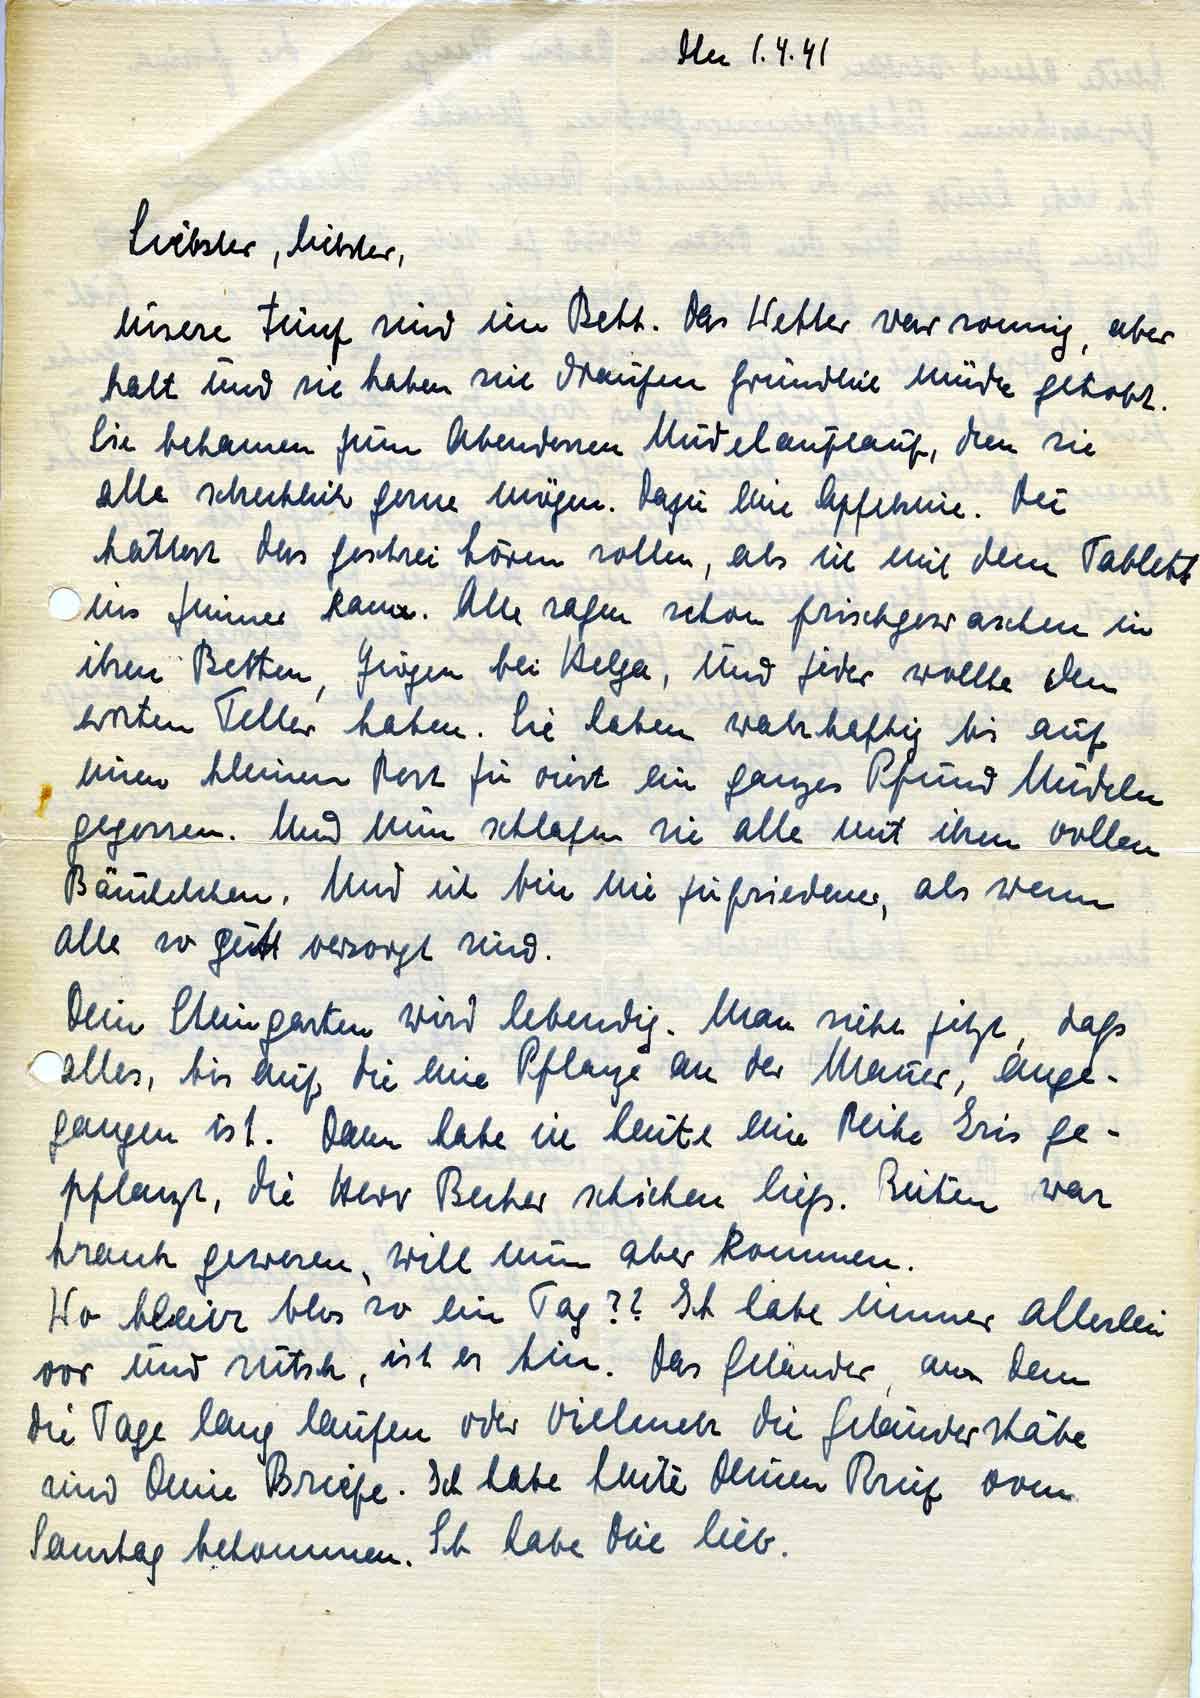 Den 1.4.41
Liebster, liebster,
unsere Fünf sind im Bett. Das Wetter war sonnig, aber
kalt und sie haben sie draußen gründlich müde getobt.
Sie bekamen zum Abendessen Nudelauflauf, den sie
alle schrecklich gerne mögen. Dazu eine Apfelsine. Du
hättest das Geschrei hören sollen, als ich mit dem Tablett
ins Zimmer kam. Alle saßen schon frischgewaschen in
ihren Betten, Jürgen bei Helga, und jeder wollte den
ersten Teller haben. Sie haben wahrhaftig bis auf
einen kleinen Rest zu viert ein ganzes Pfund Nudeln
gegessen. Und nun schlafen sie alle mit ihren vollen
Bäuchchen. Und ich bin nie zufriedener, als wenn
alle so gut versorgt sind.
Dein Steingarten wird lebendig. Man sieht jetzt, daß
alles, bis auf die eine Pflanze an der Mauer, ange-
gangen ist. Dann habe ich heute eine Reihe Iris ge-
pflanzt, die Herr Becher schicken ließ. war
krank gewesen, will nun aber kommen.
Wo bleibt blos so ein Tag?? Ich habe immer allerlei
vor und rutsch, ist er hin. Das Geländer, an dem
die Tage lang laufen oder vielmehr die Geländerstäbe
sind Deine Briefe. Ich habe heute Deinen Brief vom
Samstag bekommen. Ich habe Dich lieb.